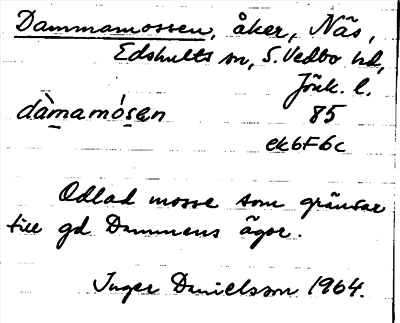 Dammamossen, åker, Näs,
Edshults sn, S. Vedbo hd,
Jönk. l.
dàmamósan 85
ek6F6c
Odlad mosse som gränsar
till gd Dammens ägor.
Inger Danielsson 1964.